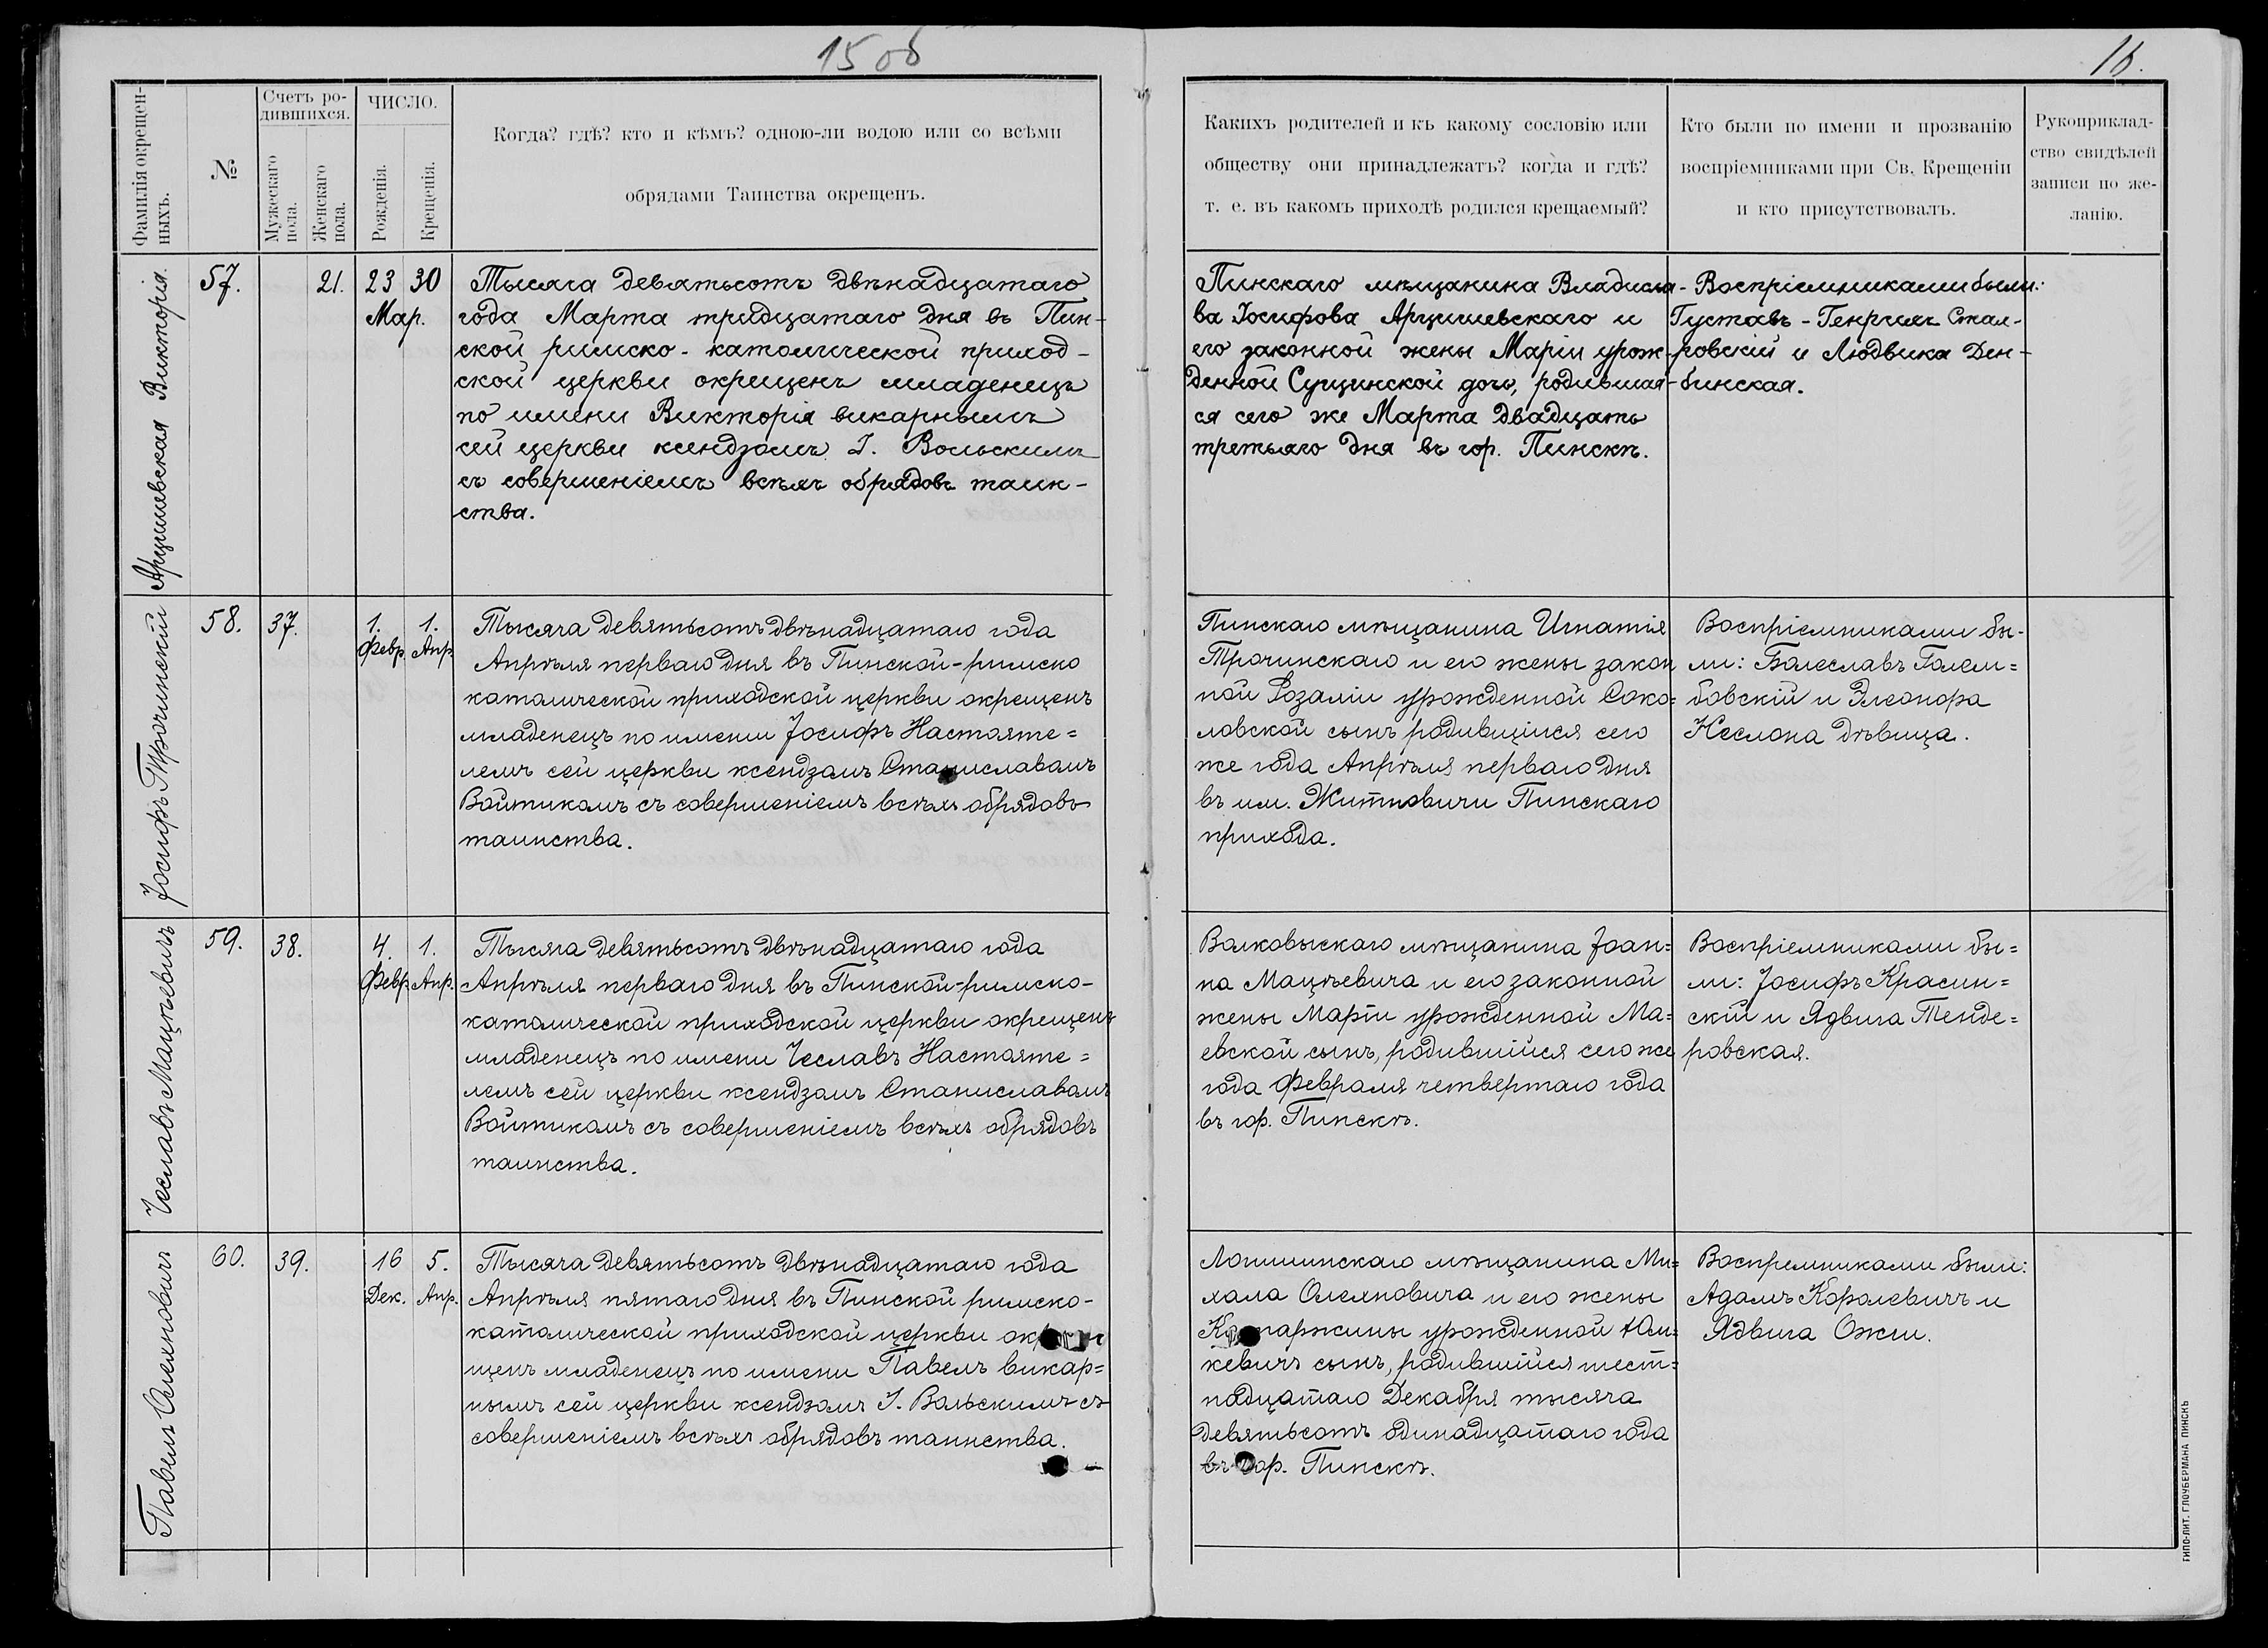 15 об
16.
Фамилія окрещен-
ныхъ.
№
Счетъ ро-
дившихся.
Мужескаго
пола.
Женскаго
пола.
ЧИСЛО.
Рожденія.
Крещенія.
Когда? гдѣ? кто и кѣмъ? одною-ли водою или со всѣми
обрядами Таинства окрещенъ.
Какихъ родителей и къ какому сословію или
обществу они принадлежатъ? когда и гдѣ?
т. е. въ какомъ приходѣ родился крещаемый?
Кто были по имени и прозванію
воспріемниками при Св. Крещеніи
и кто присутствовалъ.
Рукоприклад-
ство свидѣлей
записи по же-
ланію.
Арцишевская Викторія.
57.
21.
23 30
Мар.
Тысяча девятьсотъ двѣнадцатаго
года Марта тридцатаго дня въ Пин-
ской римско-католической приход-
ской церкви окрещенъ младенецъ
по имени Викторія викарнымъ
сей церкви ксендзомъ І. Вольскимъ
съ совершеніемъ всѣхъ обрядовъ таин-
ства.
Пинскаго мѣщанина Владисла-
ва Іосифова Арцишевскаго и
его законной жены Маріи урож-
денной Сущинской дочь, родившая-
ся сего же Марта двадцать
третьяго дня въ гор. Пинскѣ.
Воспріемниками были:
Густавъ-Генрихъ
и Людвика Ден-
бинская.
Іосифъ Трочинскій
58.
37.
1. 1.
Февр. Апр.
Тысяча девятьсотъ двѣнадцатаго года
Апрѣля перваго дня въ Пинской-римско
католической приходской церкви окрещенъ
младенецъ по имени Іосифъ Настояте=
лемъ сей церкви ксендзомъ Станиславомъ
Войтикомъ съ совершеніемъ всѣхъ обрядовъ
таинства.
Пинскаго мѣщанина Игнатія
Трочинскаго и его жены закон
ной Розаліи урожденной Соко=
ловской сынъ родившійся сего
же года Апрѣля перваго дня
въ им. Житновичи Пинскаго
прихода.
Воспріемниками бы-
ли: Болеславъ Голем=
бовскій и Элеонора
дѣвица.
Чеславъ Мацкевичъ
59.
38.
4. 1.
Февр. Апр.
Тысяча девятьсотъ двѣнадцатаго года
Апрѣля перваго дня въ Пинской-римско-
католической приходской церкви окрещенъ
младенецъ по имени Чеславъ Настояте=
лемъ сей церкви ксендзомъ Станиславомъ
Войтикомъ съ совершеніемъ всѣхъ обрядовъ
таинства.
Волковыскаго мѣщанина Іоан=
на Мацѣевича и его законной
жены Маріи урожденной Ма=
евской сынъ, родившійся сего же
года Февраля четвертаго года
въ гор. Пинскѣ.
Воспріемниками бы=
ли: Іосифъ Красин=
скій и Ядвига Тенде=
ровская.
Павелъ Олехновичъ
60.
39.
16 5.
Дек. Апр.
Тысяча девятьсотъ двѣнадцатаго года
Апрѣля пятаго дня въ Пинской римско-
католической приходской церкви
щенъ младенецъ по имени Павелъ викар=
нымъ сей церкви ксендзомъ І. Вольскимъ съ
совершеніемъ всѣхъ обрядовъ таинства.
Логишинскаго мѣщанина Ми=
хала Олехновича и его жены
урожденной Юш=
кевичъ сынъ, родившійся шест=
надцатаго Декабря тысяча
девятьсотъ одинадцатаго года
въ гор. Пинскѣ.
Воспремниками были:
Адамъ Королевичъ и
Ядвига
ТИПО-ЛИТ. ГЛОУБЕРМАНА ПИНСКЪ